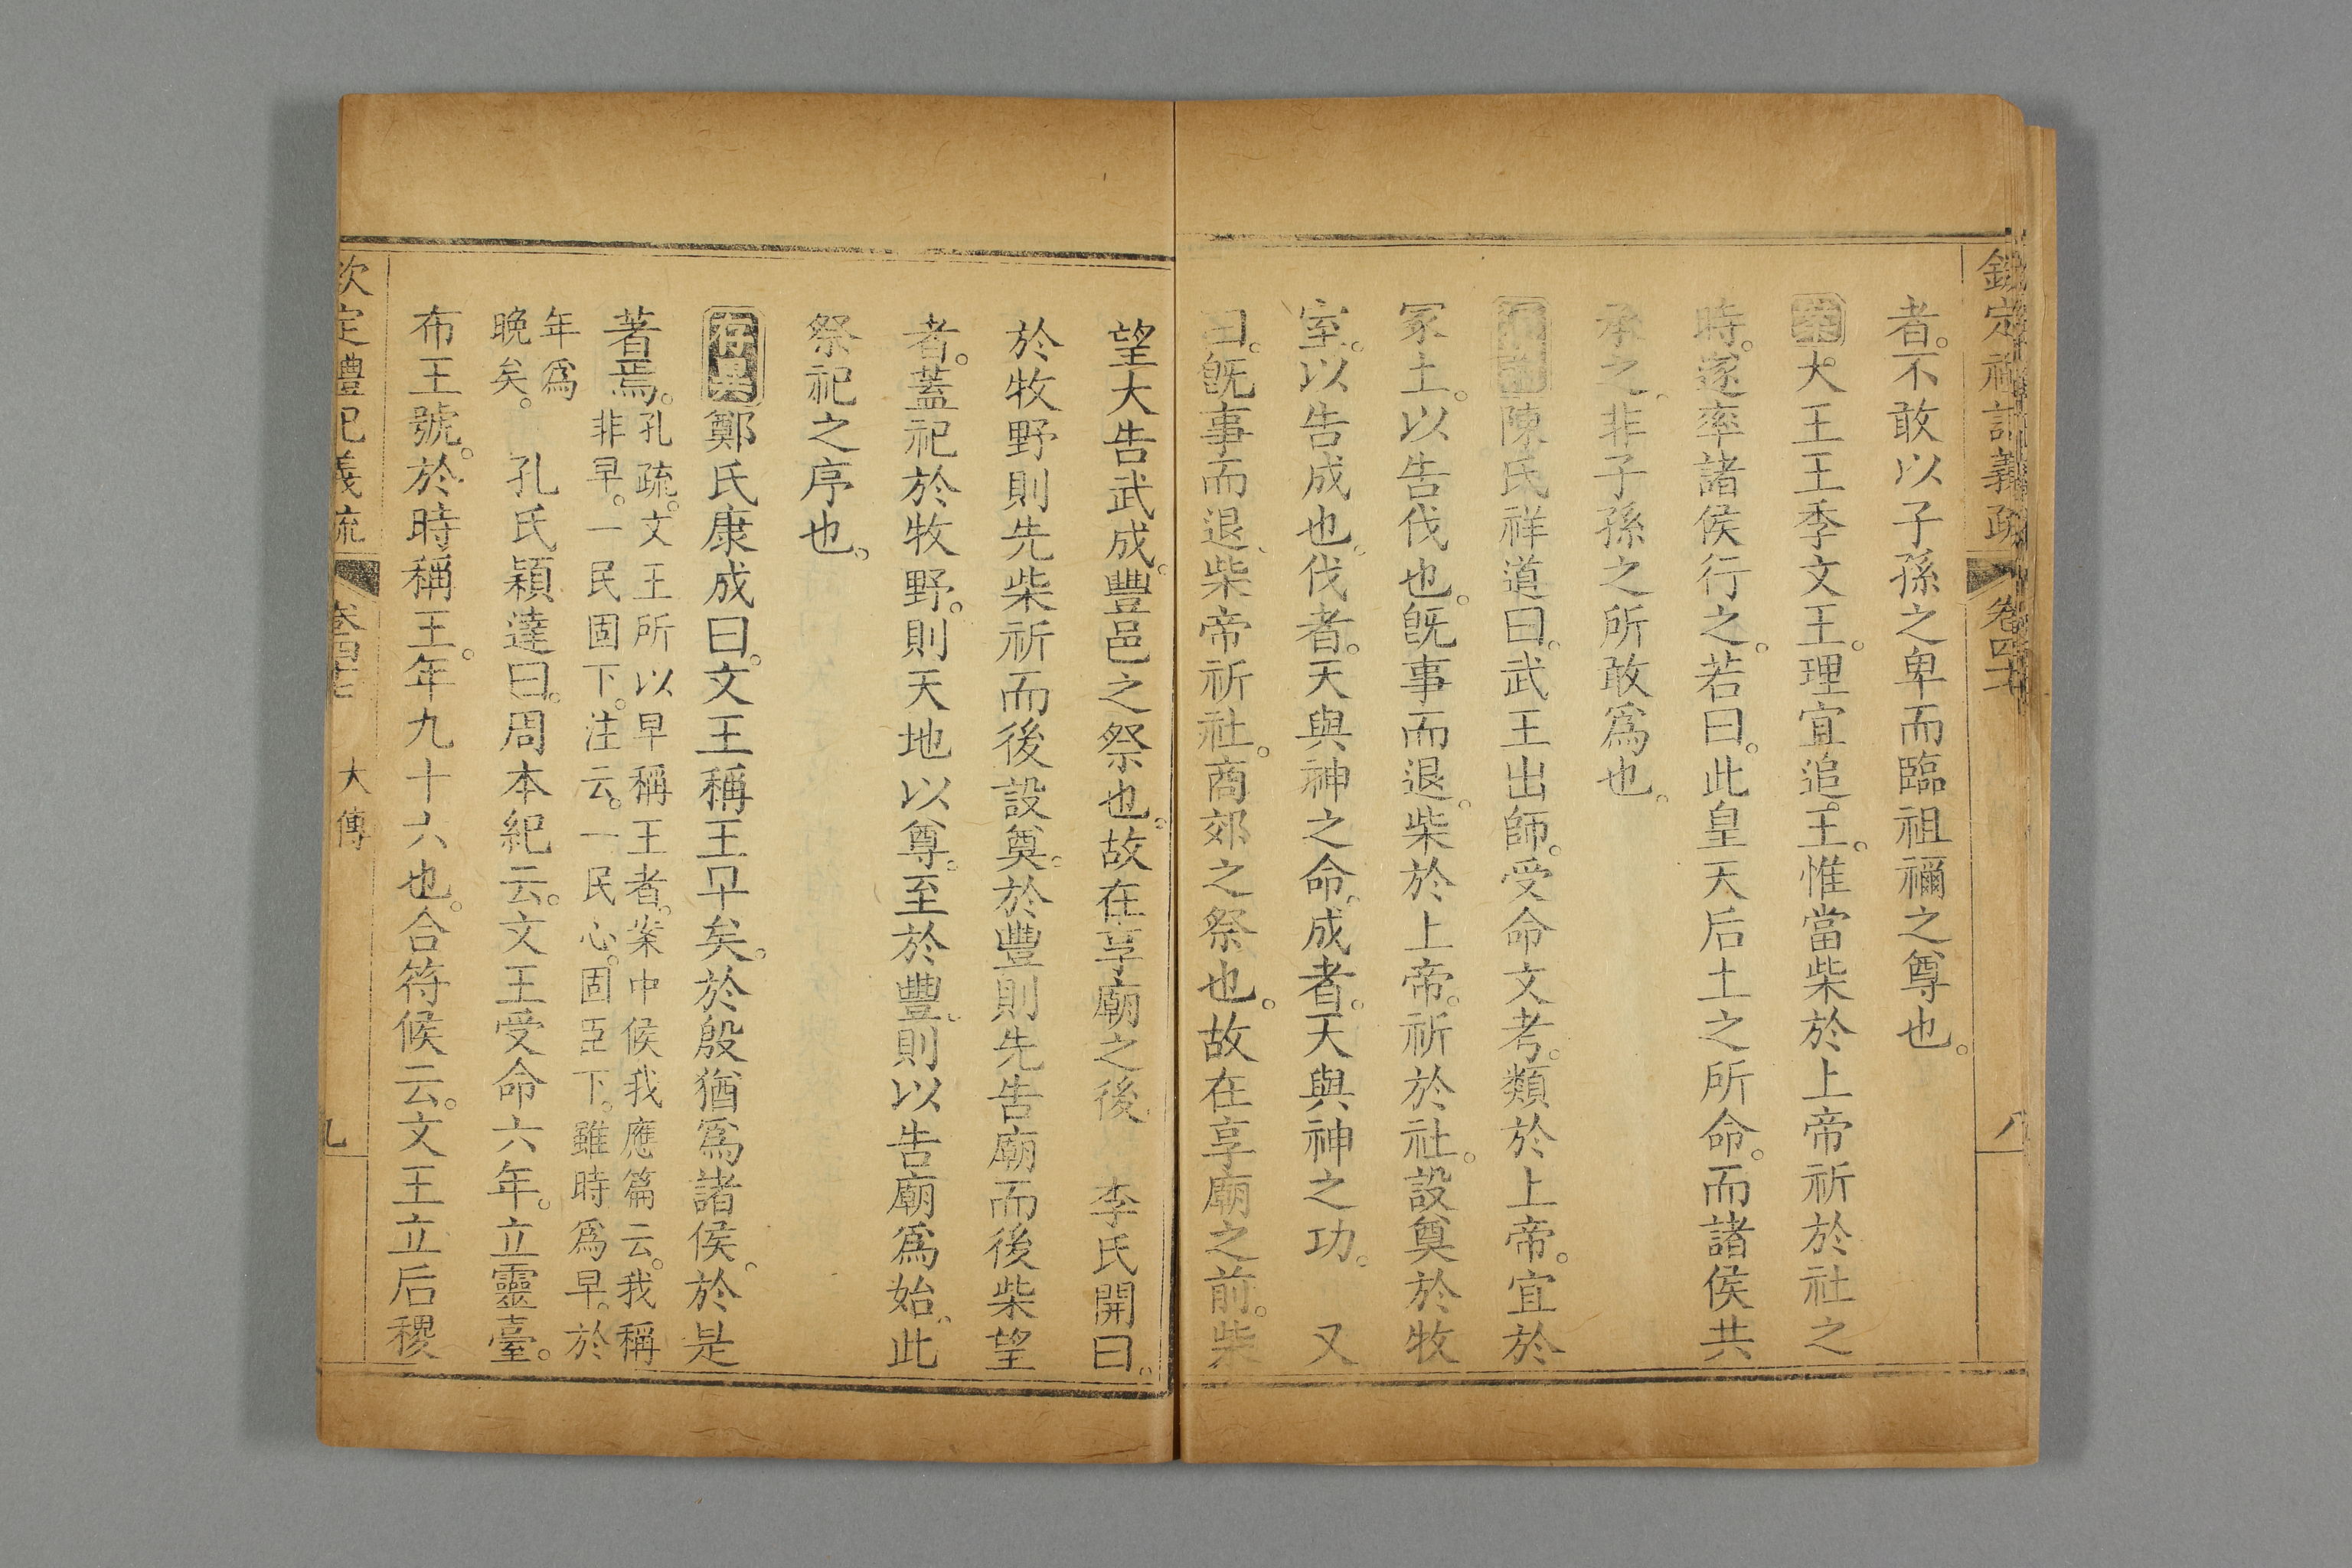 欽定禮記義疏 卷四十七 八
者。不敢以子孫之卑而臨祖禰之尊也。
案大王王季文王。理宜追王。惟當柴於上帝祈於社之
時。遂率諸侯行之。若曰。此皇天后土之所命。而諸侯共
承之、非子孫之所敢爲也。
陳氏祥道曰。武王出師。受命文考。類於上帝。宜於
冢土。以告伐也。旣事而退。柴於上帝。祈於社。設奠於牧
室。以告成也。伐者。天與神之命。成者。天與神之功。 又
曰。旣事而退、柴帝祈社。商郊之祭也。故在享廟之前。柴
望大告武成。豐邑之祭也。故在享廟之後 李氏開曰。
於牧野則先柴祈而後設奠。於豐則先告廟而後柴望
者。蓋祀於牧野。則天地以尊。至於豐、則以告廟爲始、此
祭祀之序也。
存異鄭氏康成曰。文王稱王早矣。於殷猶爲諸侯。於是
著焉。孔疏。文王所以早稱王者。案中候我應篇云。我稱
非早。一民固下。注云。一民心。固臣下。雖時爲早。於
年爲
晚矣。 孔氏穎達曰。周本紀云。文王受命六年。立靈臺。
布王號。於時稱王。年九十六也。合符候云。文王立后稷
欽定禮記義疏 卷四十七 大傳 九